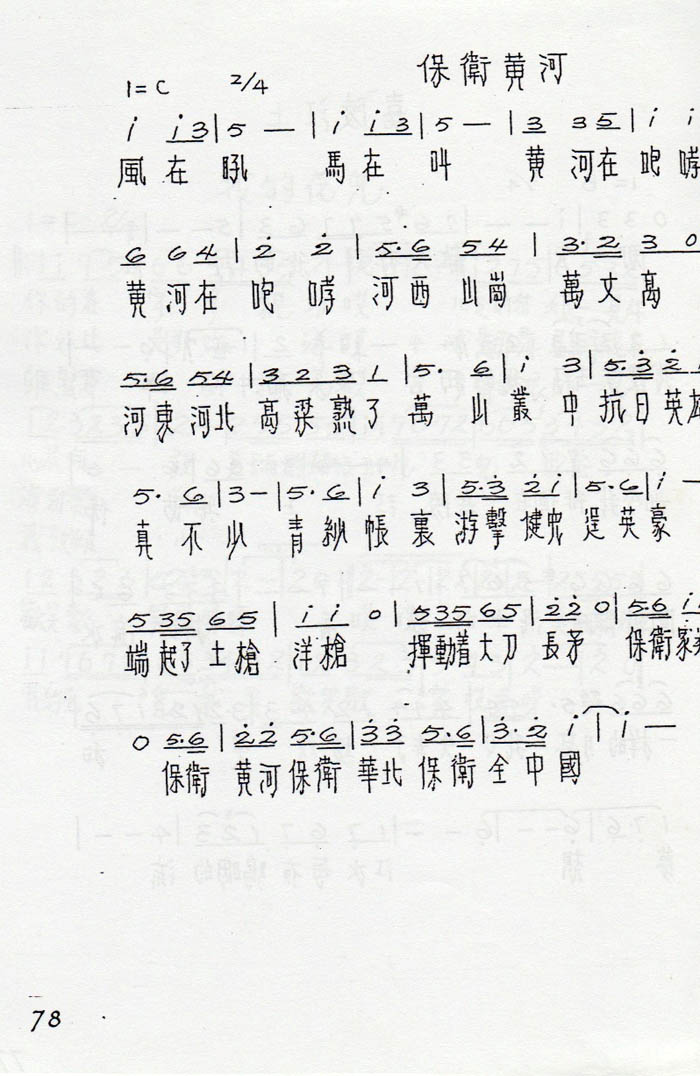 保衛黄河
1=C 2/4
i i 3 | 5 — | i i 3 | 5 — | 3 3 5 | i i
風在吼 馬在叫 黄河在咆哮
6 6 4 | 2̇ 2̇ | 5·6 5 4 | 3·2 3 0
黄河在咆哮 河西山崗 萬丈高
5·6 5 4 | 3 2 3 1 | 5· 6 | i 3 | 5·3̇ 2̇
河東河北 高梁熟了 萬山叢中 抗日英雄
5· 6 | 3 - | 5· 6 | i 3 | 5·3̇ 2̇ i | 5·6 | i —
真不少 青紗帳裏 游擊健児逞英豪
5 3 5 6 5 | i i 0 | 5 3 5 6 5 | 2̇ 2̇ 0 | 5·6 i
端起了土槍 洋槍 揮動着大刀長矛 保衛家
0 5·6 | 2̇ 2̇ 5·6 | 3̇ 3̇ 5·6 | 3̇·2̇ i | i —
保衛 黄河保衛 華北 保衛全中國
78